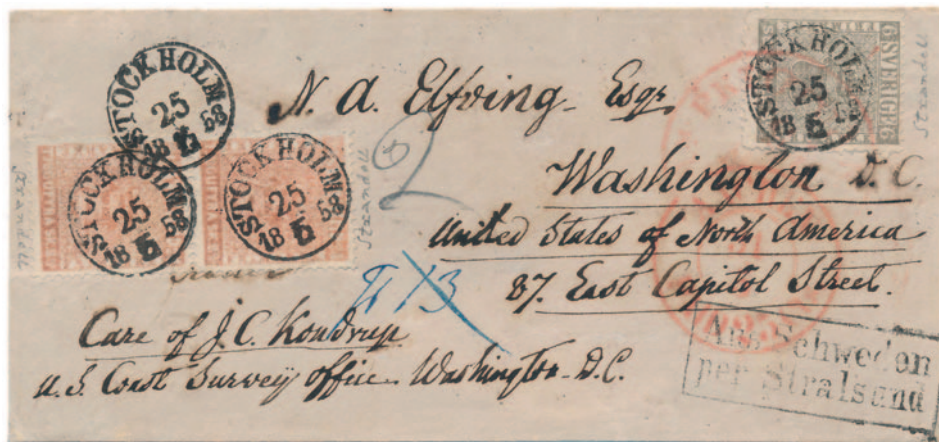 STOCKHOLM
25
18 5 58
STOCKHOLM
25
18 5 58
STOCKHOLM
25
18 5 58
STOCKHOLM
25
18 5 58
6 SVERIGE 6
N. A. Elfving Esqr
Washington D.C.
United States of North America
87. East Capitol Street.
Care of J. C. Kondrup
U. S Coast Survey office Washington D.C.
Aus Schweden
per Stralsund